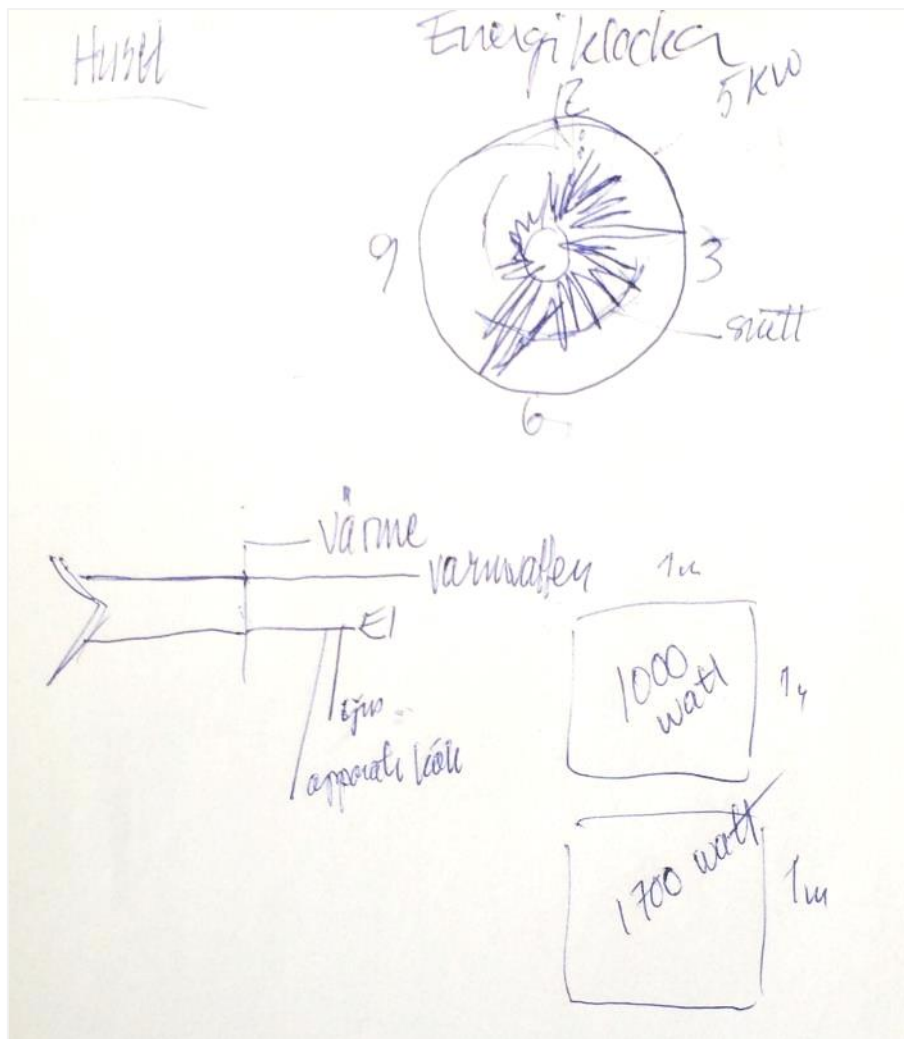 Huset
Energiklocka
5 KW
12
9
3
snitt
6
värme
varmvatten
El
ljus
apparat kök
1m
1000
watt
1m
1700 watt
1m